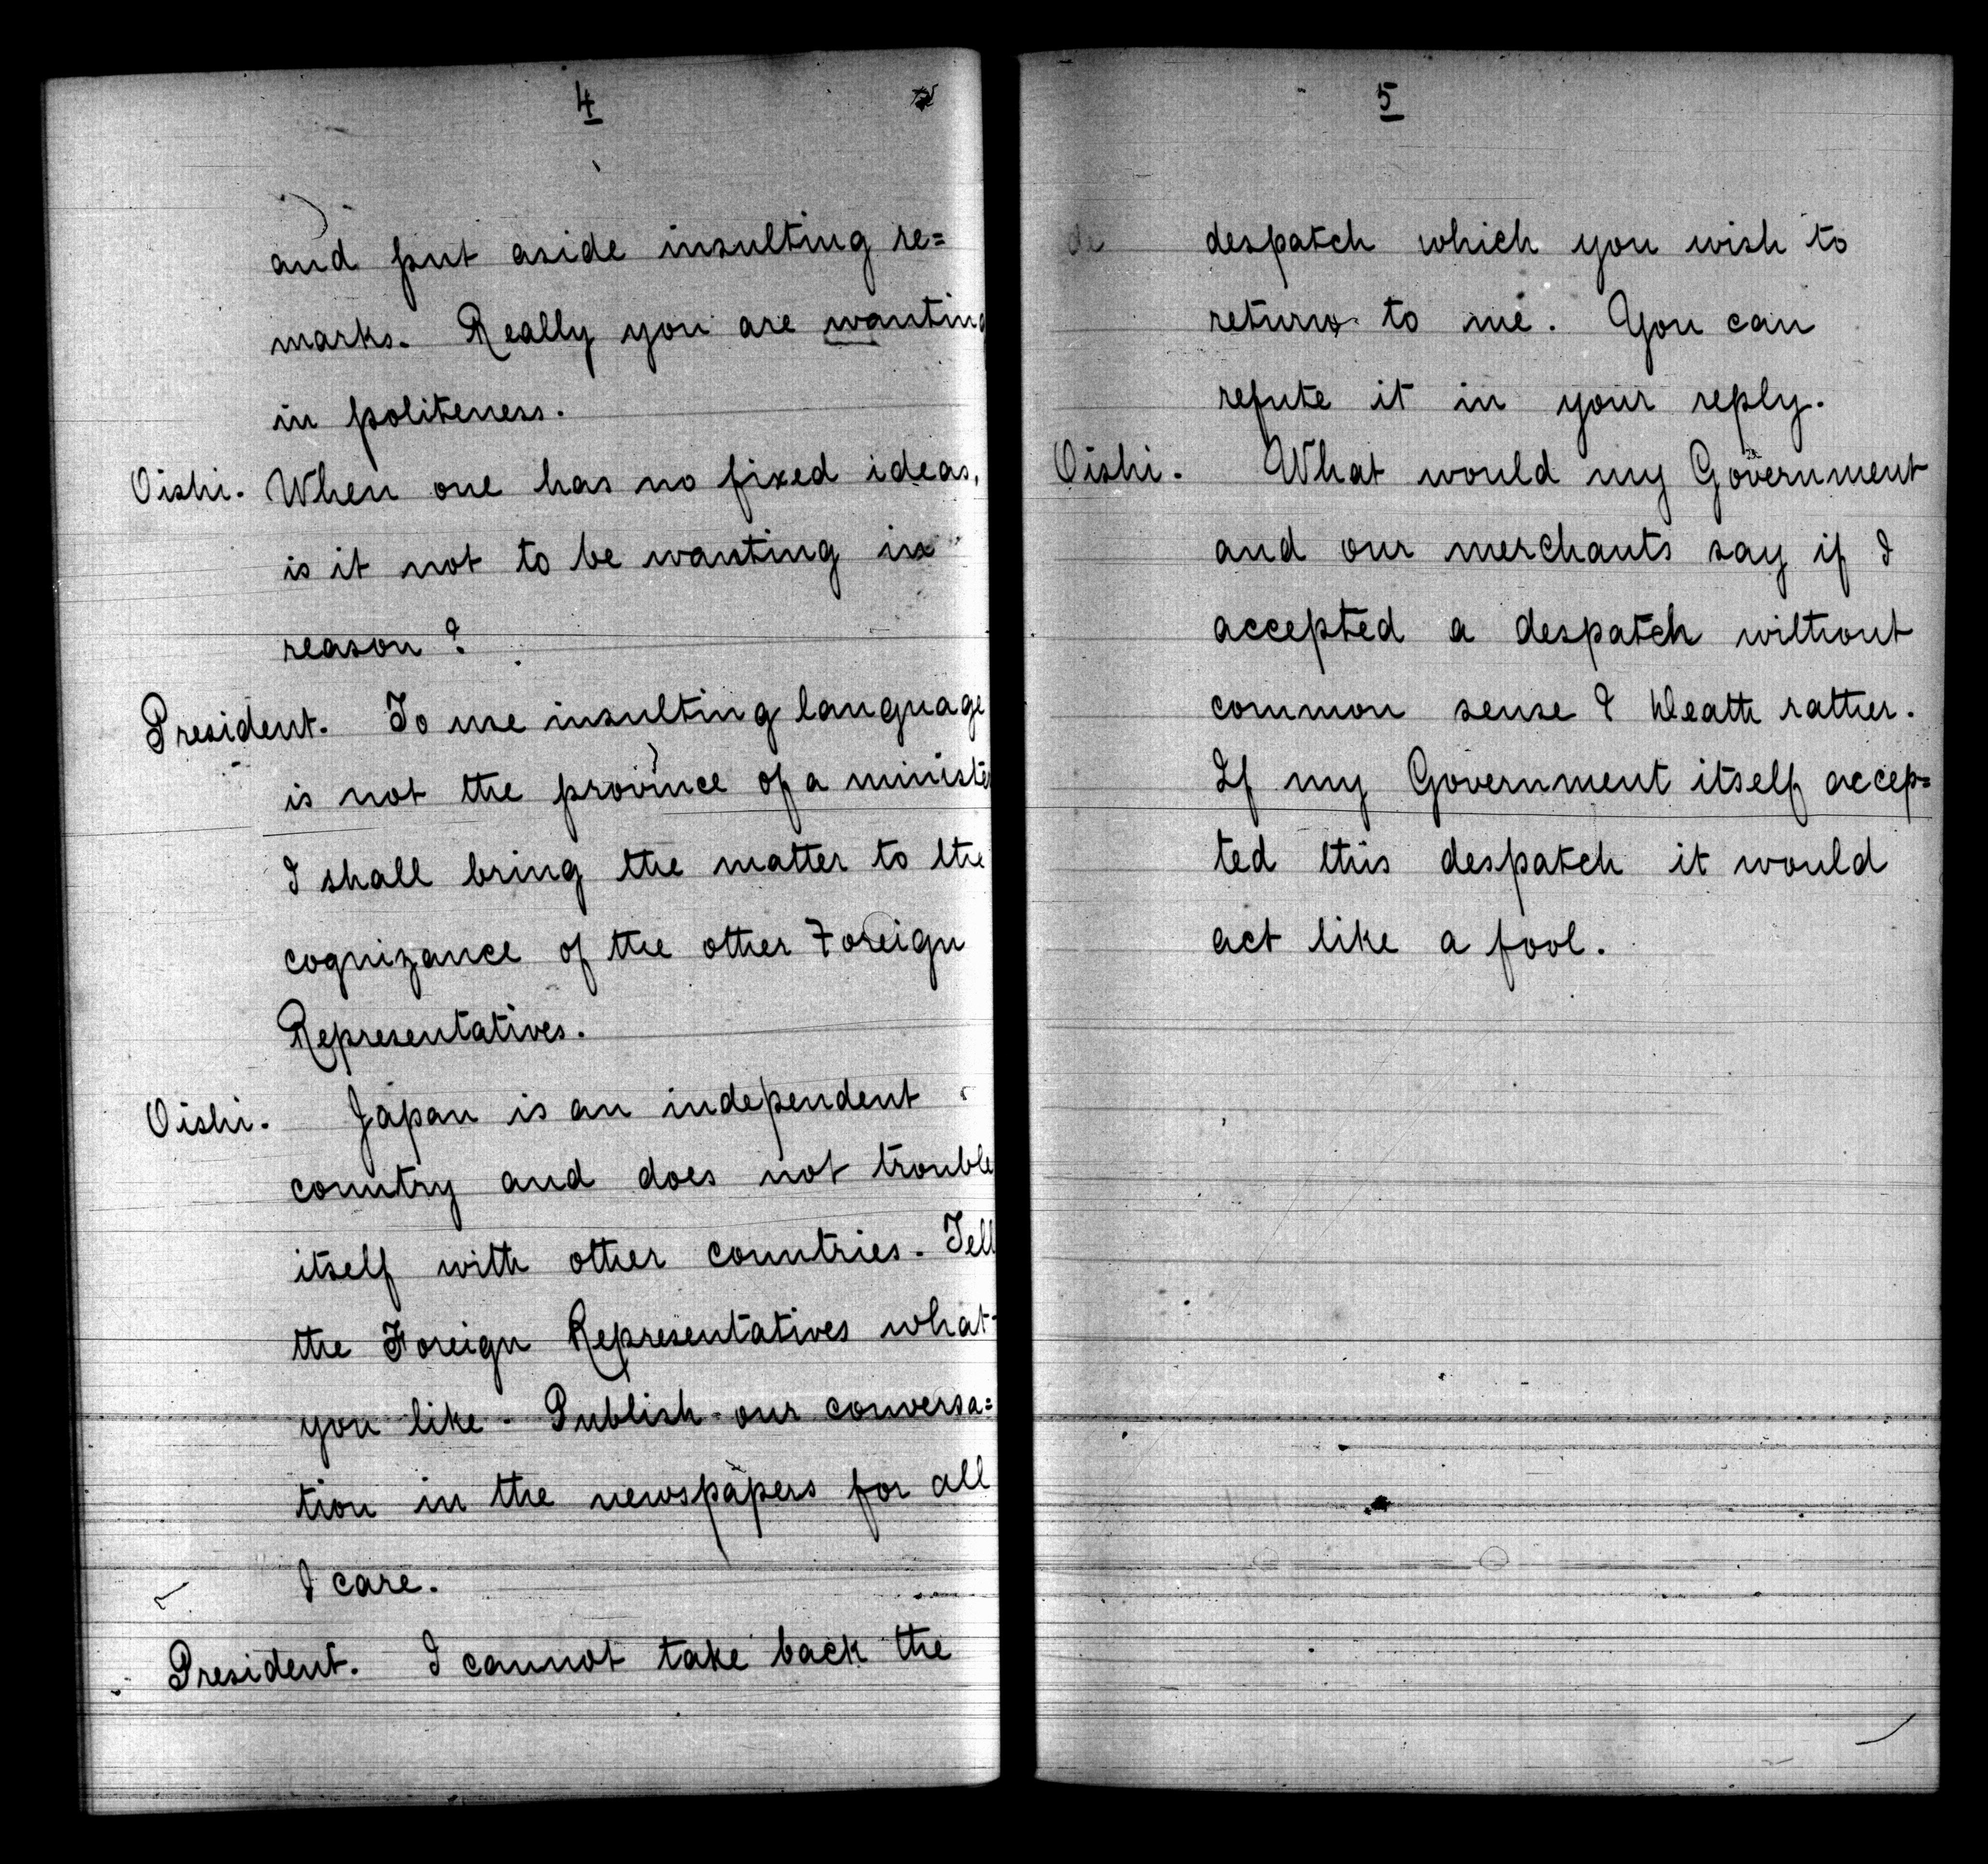 4
and put aside insulting re=
marks. Really you are wanting
in politeness.
Oishi. When one has no fixed ideas,
is it not to be wanting in
reason?
President. To use insulting language
is not the province of a minister
I shall bring the matter to the
cognizance of the other Foreign
Representatives.
Oishi. Japan is an independent
country and does not trouble
itself with other countries. Tell
the Foreign Representatives what
you like. Publish our conversa=
tion in the newspapers for all
I care.
President. I cannot take back the
5
despatch which you wish to
return to me. You can
refute it in your reply.
Oishi. What would my Government
and our merchants say if I
accepted a despatch without
common sense? Death rather.
If my Government itself accep=
ted this despatch it would
act like a fool.